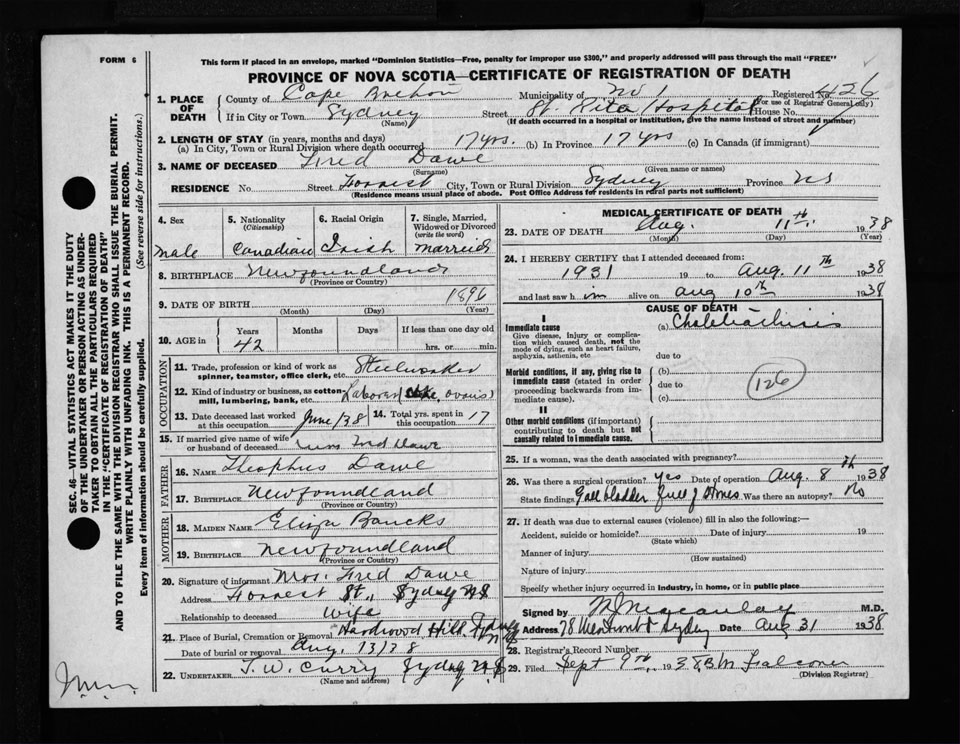 FORM 6
This form if placed in an envelope, marked "Dominion Statistics—Free, penalty for improper use $300," and properly addressed will pass through the mail "FREE"
PROVINCE OF NOVA SCOTIA—CERTIFICATE OF REGISTRATION OF DEATH
SEC. 46—VITAL STATISTICS ACT MAKES IT THE DUTY
OF THE UNDERTAKER OR PERSON ACTING AS UNDER-
TAKER TO OBTAIN ALL THE PARTICULARS REQUIRED
IN THE "CERTIFICATE OF REGISTRATION OF DEATH"
AND TO FILE THE SAME WITH THE DIVISION REGISTRAR WHO SHALL ISSUE THE BURIAL PERMIT.
WRITE PLAINLY WITH UNFADING INK. THIS IS A PERMANENT RECORD.
Every item of information should be carefully supplied. (See reverse side for instructions.)
1. PLACE OF DEATH County of Cape Breton Municipality of No 1 Registered No. 426
(For use of Registrar General only)
If in City or Town Sydney Street St. Rita Hospital House No.
(Name) (If death occurred in a hospital or institution, give the name instead of street and number)
2. LENGTH OF STAY (in years, months and days)
(a) In City, Town or Rural Division where death occurred 17 yrs. (b) In Province 17 yrs (c) In Canada (if immigrant)
3. NAME OF DECEASED Fred Dawe
(Surname) (Given name or names)
RESIDENCE No. Street Forrest City, Town or Rural Division Sydney Province NS
(Residence means usual place of abode. Post Office Address for residents in rural parts not sufficient)
4. Sex Male
5. Nationality (Citizenship) Canadian
6. Racial Origin Irish
7. Single, Married, Widowed or Divorced (write the word) Married
8. BIRTHPLACE Newfoundland
(Province or Country)
9. DATE OF BIRTH 1896
(Month) (Day) (Year)
10. AGE in Years Months Days If less than one day old
42 hrs. or min.
OCCUPATION
11. Trade, profession or kind of work as spinner, teamster, office clerk, etc. Steelworker
12. Kind of industry or business, as cotton-mill, lumbering, bank, etc. Laborer (Coke ovens)
13. Date deceased last worked at this occupation June/38
14. Total yrs. spent in this occupation 17
15. If married give name of wife or husband of deceased Mrs Fred Dawe
FATHER
16. NAME Theophus Dawe
17. BIRTHPLACE Newfoundland
(Province or Country)
MOTHER
18. MAIDEN NAME Eliza
19. BIRTHPLACE Newfoundland
(Province or Country)
20. Signature of informant Mrs. Fred Dawe
Address Forrest St., Sydney N.S
Relationship to deceased Wife
21. Place of Burial, Cremation or Removal Hardwood Hill Sydney N.S
Date of burial or removal Aug. 13/38
22. UNDERTAKER T. W. Curry Sydney N.S
(Name and address)
MEDICAL CERTIFICATE OF DEATH
23. DATE OF DEATH Aug. 11th. 1938
(Month) (Day) (Year)
24. I HEREBY CERTIFY that I attended deceased from:
1931 19 to Aug. 11th 1938
and last saw him alive on Aug 10th 1938
CAUSE OF DEATH
I
Immediate cause (a)
Give disease, injury or complica-
tion which caused death, not the
mode of dying, such as heart failure,
asphyxia, asthenia, etc due to
Morbid conditions, if any, giving rise to (b)
immediate cause (stated in order due to
proceeding backwards from im-
mediate cause). (c)
126
II
Other morbid conditions (if important)
contributing to death but not
causally related to immediate cause.
25. If a woman, was the death associated with pregnancy?
26. Was there a surgical operation? yes Date of operation Aug. 8th 1938
State findings Gall bladder full of stones Was there an autopsy? No
27. If death was due to external causes (violence) fill in also the following:—
Accident, suicide or homicide? Date of injury 19
(State which)
Manner of injury
(How sustained)
Nature of injury
Specify whether injury occurred in industry, in home, or in public place
Signed by Macaulay M.D.
Address 78 Sydney Date Aug 31 1938
28. Registrar's Record Number
29. Filed Sept 9th, 1938 B M Falconer
(Division Registrar)